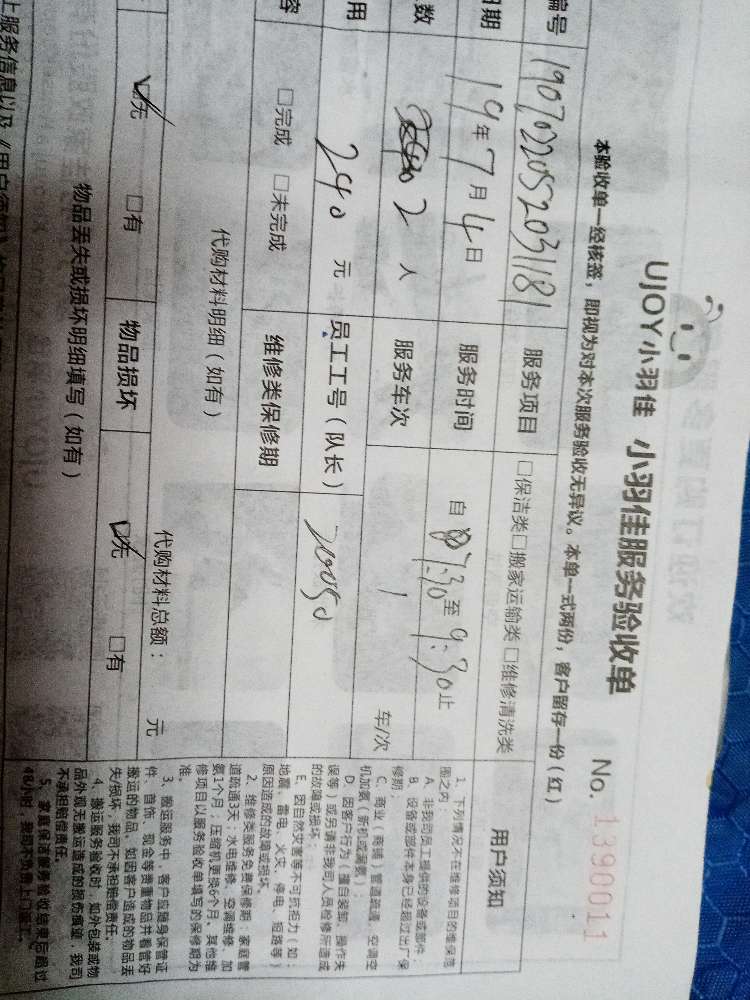 UJOY小羽佳 小羽佳服务验收单 No. 1390011
本验收单一经核签，即视为对本次服务验收无异议。本单一式两份，客户留存一份（红）
编号 1907022052031181 服务项目 □保洁类□搬家运输类□维修清洗类
日期 19年7月4日 服务时间 自 7:30至9:30止
数 2 人 服务车次 1 车/次
用 240 元 员工工号（队长） 20050
容 □完成 □未完成 维修类保修期
代购材料明细（如有） 代购材料总额： 元
□无 □有 物品损坏 □无 □有
物品丢失或损坏明细填写（如有）
上服务信息以及《用户须知》
用户须知
1、下列情况不在维修项目的维保范
围之内：
A、非我司员工提供的设备或部件；
B、设备或部件本身已经超过出厂保
修期；
C、商业（商铺）管道疏通、空调空
机加氨（新机或漏氨）；
D、因客户行为（擅自装卸、操作失
误等）或另请非我司人员检修所造成
的故障或损坏；
E、因自然灾害等不可抗拒力（如：
地震、雷电、火灾、停电、短路等）
原因造成的故障或损坏。
2、维修类服务免费保修期：家庭管
道疏通3天；水电维修、空调维修、加
氨1个月；压缩机更换6个月，其他维
修项目以服务验收单填写的保修期为
准。
3、搬运服务中，客户应随身保管证
件、首饰、现金等贵重物品并看管好
搬运的物品，如因客户造成的物品丢
失/损坏，我司不承担赔偿责任。
4、搬运服务验收时，如外包装或物
品外观无搬运造成的损伤痕迹，我司
不承担赔偿责任。
5、家庭保洁服务验收结束后超过
48小时，我司不免费上门返工。